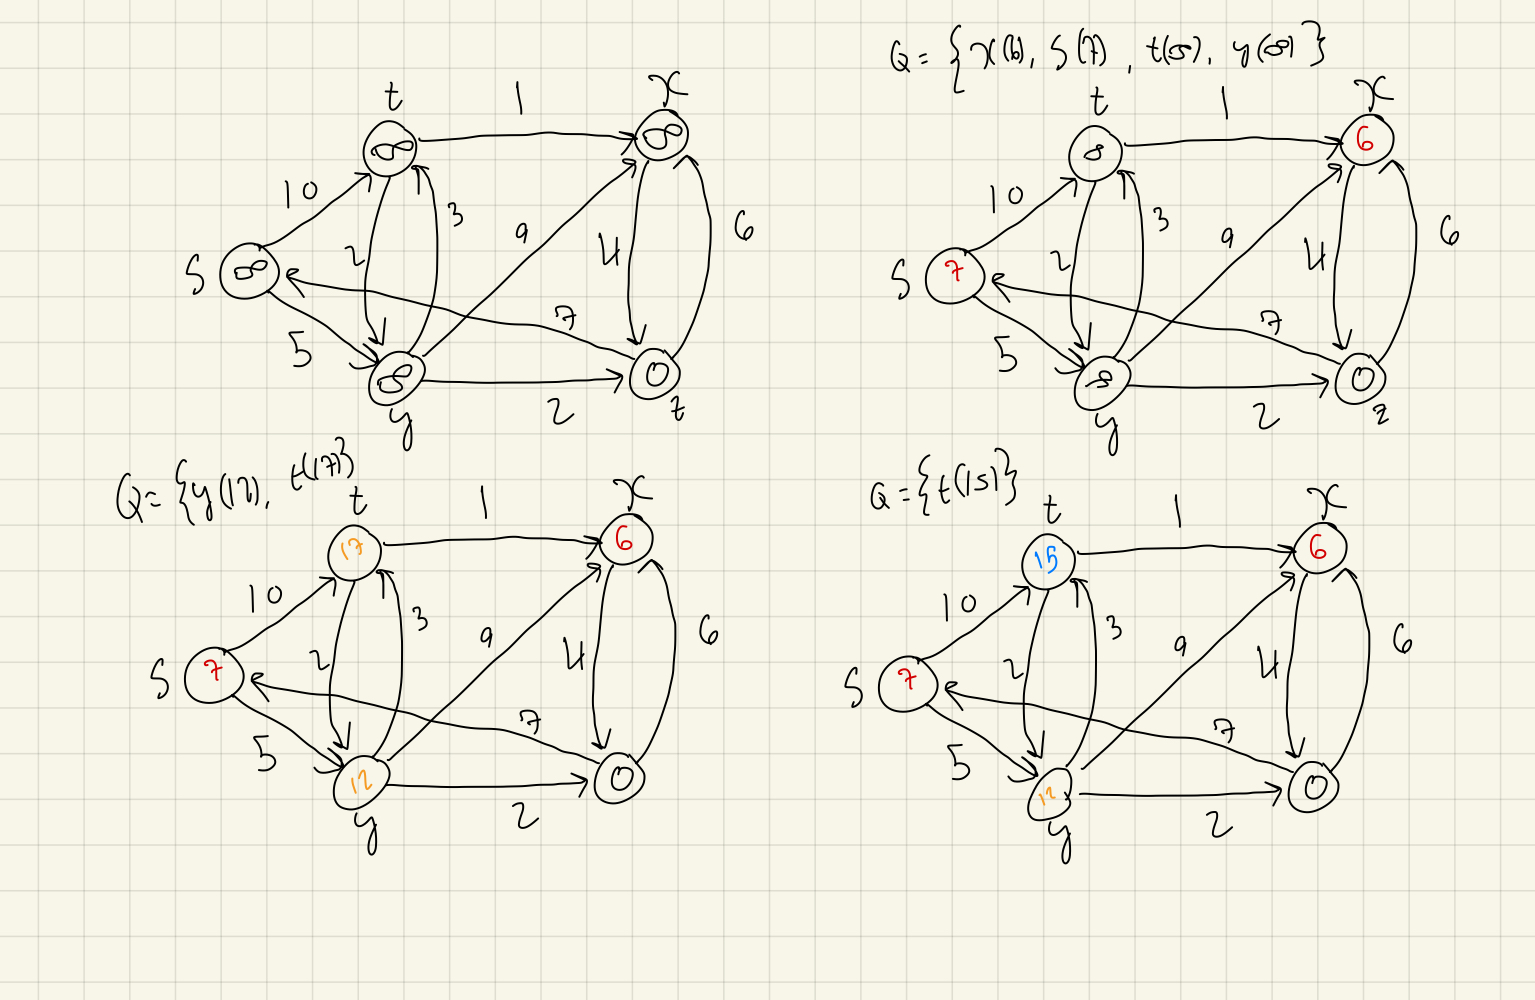 t 1 x
∞ ∞
10 3 9 4 6
S ∞ 2
5 7
∞ 2 0
y z
Q = {x(6), S(7), t(∞), y(∞)}
t 1 x
∞ 6
10 3 9 4 6
S 7 2
5 7
∞ 2 0
y z
Q = {y(12), t(17)}
t 1 x
17 6
10 3 9 4 6
S 7 2
5 7
12 2 0
y
Q = {t(15)}
t 1 x
15 6
10 3 9 4 6
S 7 2
5 7
12 2 0
y